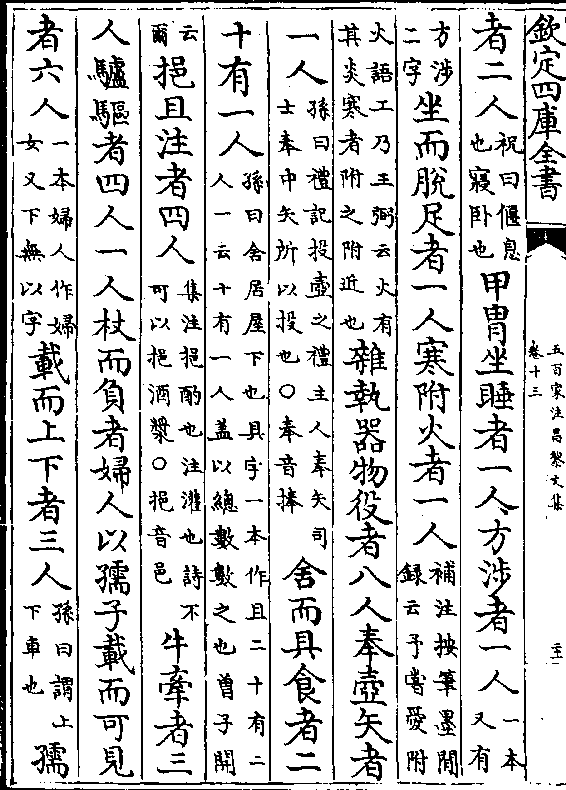 欽定四庫全書
五百家注昌黎文集
卷十三
者二人祝曰偃息也寢卧也甲胄坐睡者一人方涉者一人一本又有
方涉二字坐而脫足者一人寒附火者一人補注按筆墨閒録云予嘗愛附
火語工乃王弼云火有其炎寒者附之附近也雜執器物役者八人奉壺矢者
一人孫曰禮記投壺之禮主人奉矢司士奉中矢所以投也〇奉音捧舍而具食者二
十有一人孫曰舍居屋下也具字一本作且二十有二人一云十有一人盖以總數數之也曽子開
云爾挹且注者四人集注挹酌也注灌也詩不可以挹酒漿〇挹音邑牛牽者三
人驢驅者四人一人杖而負者婦人以孺子載而可見
者六人一本婦人作婦女又下無以字載而上下者三人孫曰謂上下車也孺